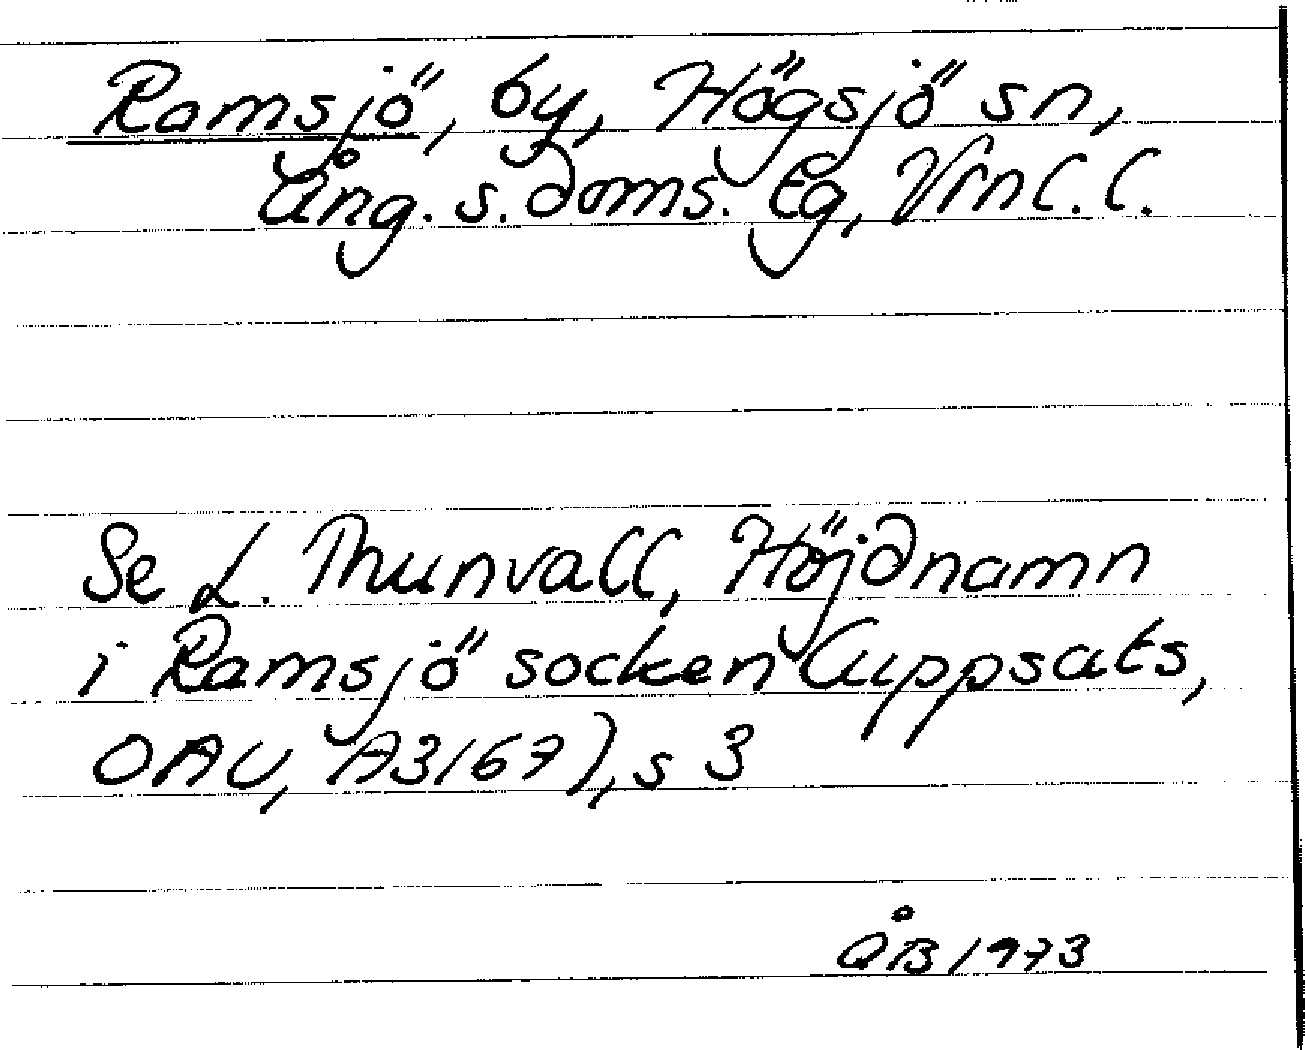 Ramsjö, by, Högsjö sn,
Ång. s. doms. lg, Vrnl. l.
Se L. Thunvall, Höjdnamn
i Ramsjö socken (uppsats,
OAU, A3167), s 3
ÅB 1973